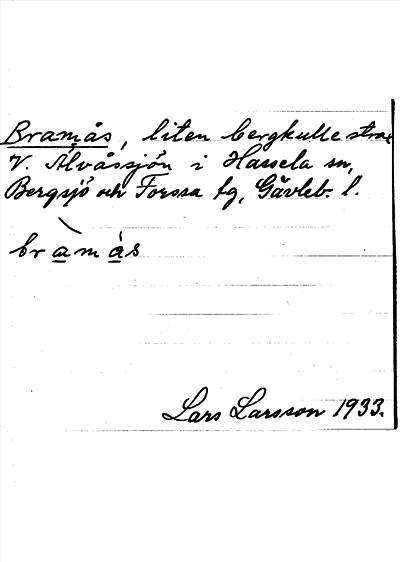 Bramås, liten bergkulle strax
V. Älvåssjön i Hassela sn,
Bergsjö och Forssa tg, Gävleb. l.
bràmás
Lars Larsson 1933.